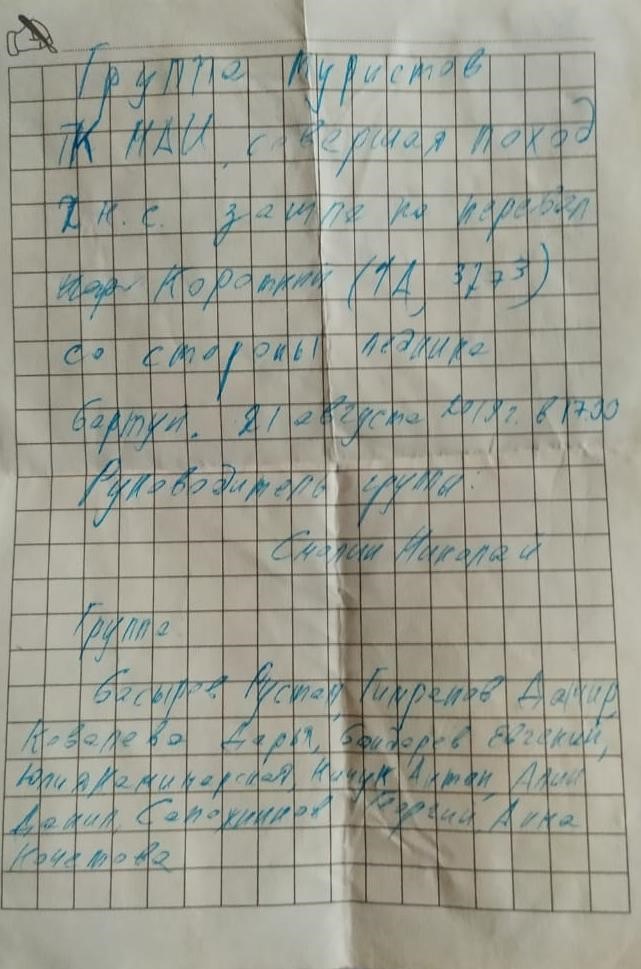 Группа туристов
ТК МАИ, совершая поход
2 к.с. зашла на перевал
Короткий (1А, 3773)
со стороны ледника
Бартуй. 21 августа 2019г. в 1730
Руководитель группы:
Смолин Николай
Группа
Басыров Рустам, Гимранов Дамир,
Ковалева Дарья, Бондарев Евгений,
Юлия Каминарская, Кичук Антон,
Данил, Сапожников Георгий, Анна
Кочетова